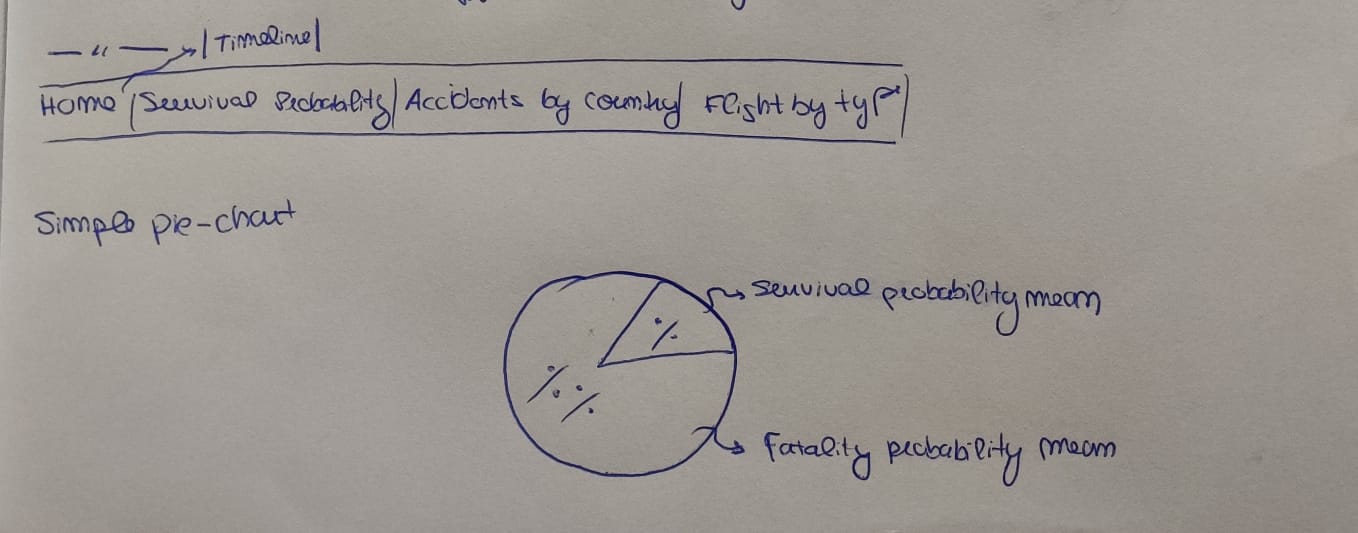 — " — |Timeline|
Home |Survival Probability| Accidents by country| Flight by type|
Simple pie-chart
% Survival probability mean
%%
Fatality probability mean